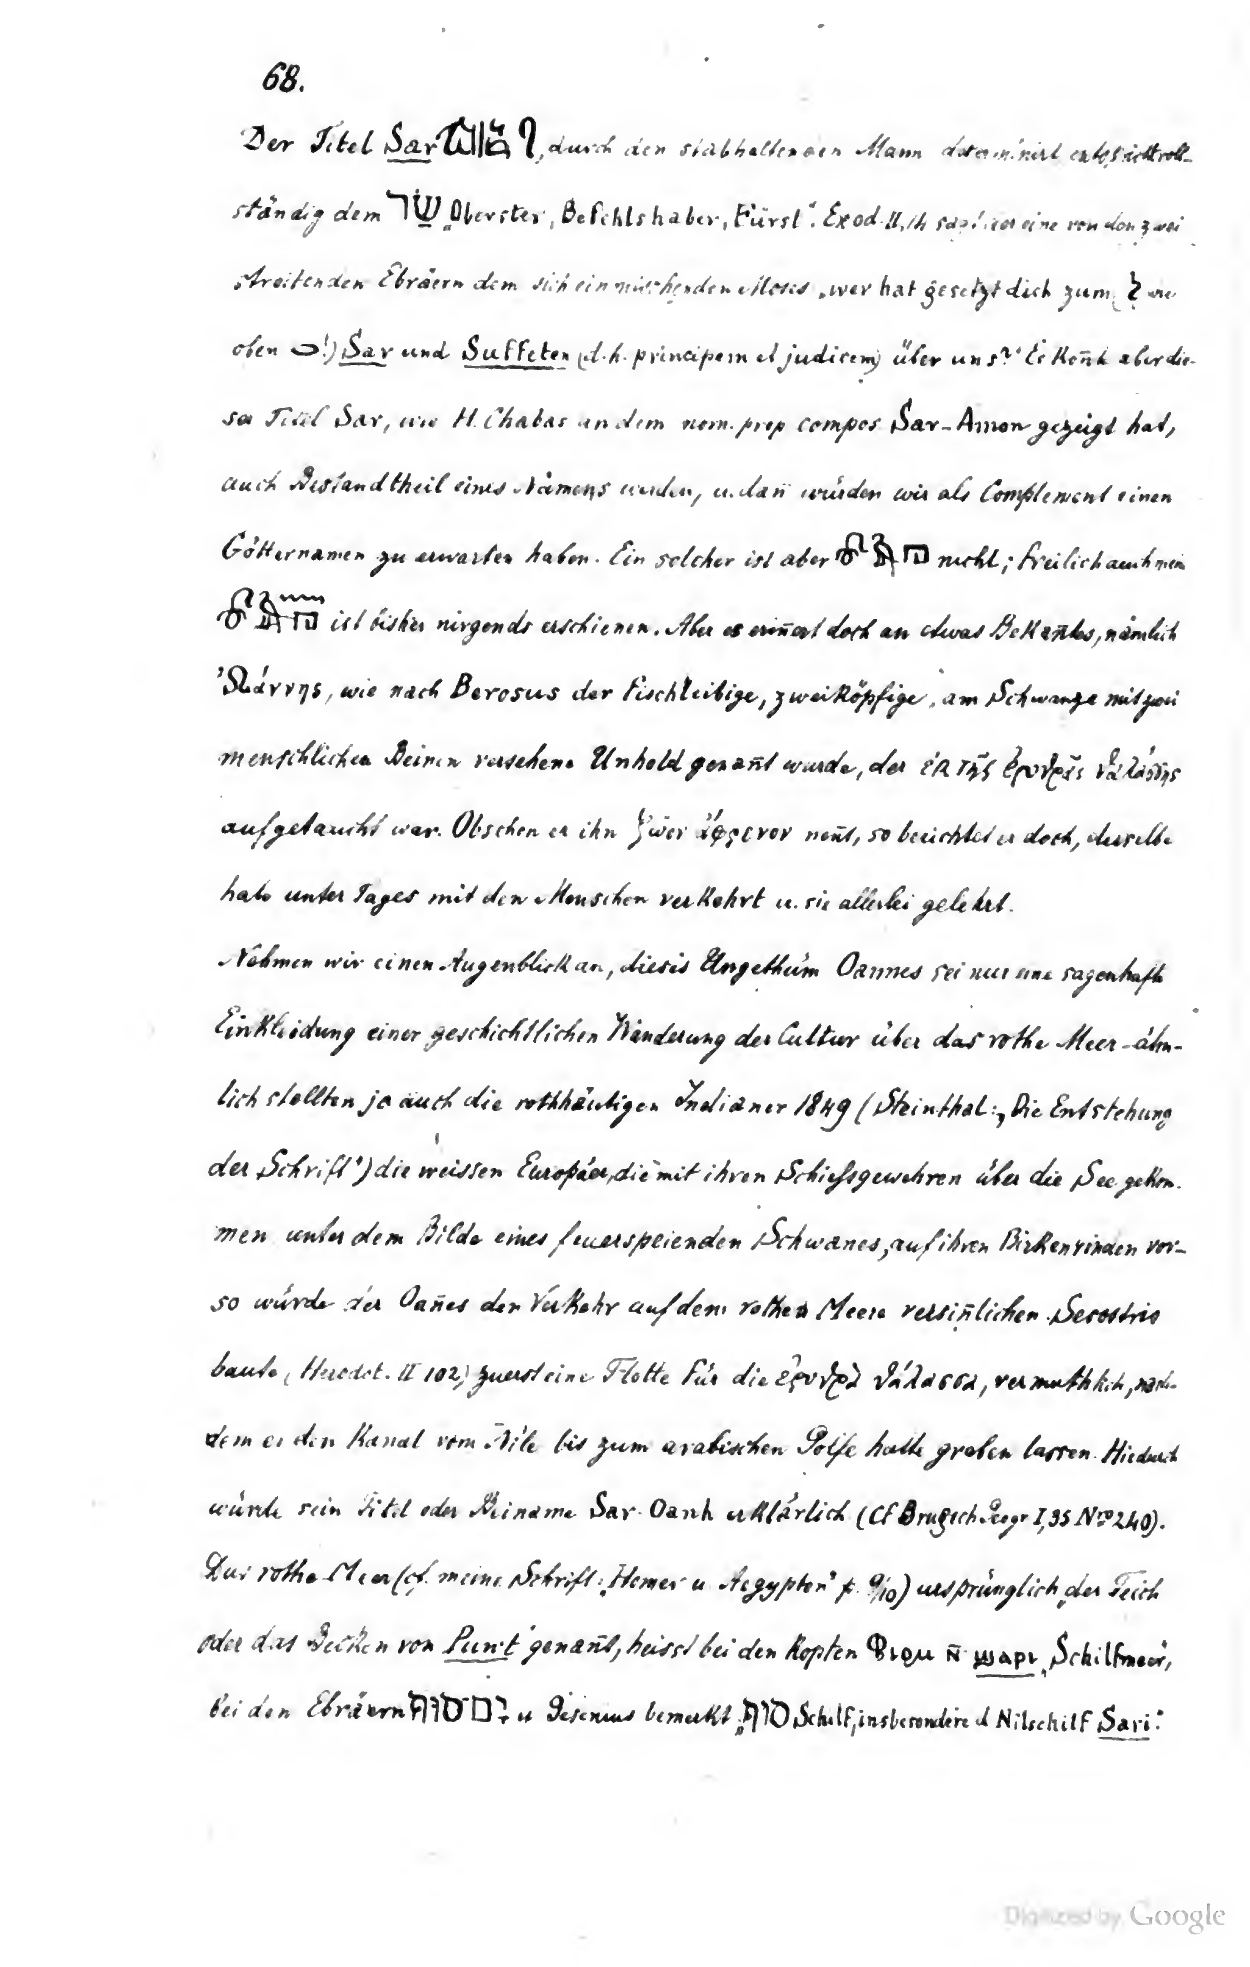 68.
Der Titel Sar, durch den stabhaltenden Mann determinirt, entspricht voll-
ständig dem שׂר „Oberster, Befehlshaber, Fürst“. Exod. II, 14 sagt der eine von den zwei
streitenden Ebräern dem sich einmischenden Moses „wer hat gesetzt dich zum (ל wie
oben !) Sar und Suffeten (d. h. principem et judicem) über uns?“ Es kon̄te aber die-
ser Titel Sar, wie H. Chabas an dem nom. prop compos Sar-Amon gezeigt hat,
auch Bestandtheil eines Namens werden, u. dan̄ würden wir als Complement einen
Götternamen zu erwarten haben. Ein solcher ist aber nicht; freilich auch mein
ist bisher nirgends erschienen. Aber es erin̄ert doch an etwas Bekan̄tes, nämlich
’Ωάννης, wie nach Berosus der fischleibige, zweiköpfige, am Schwanze mit zwei
menschlichen Beinen versehene Unhold genan̄t wurde, der ἐκ τῆς ἐρυθρᾶς θαλάσσης
aufgetaucht war. Obschon er ihn ζῶον ἄφρενον nen̄t, so berichtet er doch, derselbe
habe unter Tages mit den Menschen verkehrt u. sie allerlei gelehrt.
Nehmen wir einen Augenblick an, dieses Ungethüm Oannes sei nur eine sagenhafte
Einkleidung einer geschichtlichen Wanderung der Cultur über das rothe Meer - ähn-
lich stellten ja auch die rothhäutigen Indianer 1849 (Steinthal: „Die Entstehung
der Schrift“) die weissen Europäer, die mit ihren Schiessgewehren über die See gekom-
men unter dem Bilde eines feuerspeienden Schwanes, auf ihren Birkenrinden vor-
so würde der Oan̄es den Verkehr auf dem rothen Meere versin̄lichen. Sesostris
baute (Herodot. II 102) zuerst eine Flotte für die ἐρυθρὰ θάλασσα, vermuthlich, nach-
dem er den Kanal vom Nile bis zum arabischen Golfe hatte graben lassen. Hiedurch
würde sein Titel oder Beiname Sar-Oanh erklärlich (Cf Brugsch Geogr I, 35 Nro 240).
Das rothe Meer (cf. meine Schrift: „Homer u Aegypten“ p. 9/10) ursprünglich „der Teich
oder das Becken von Punt“ genan̄t, heisst bei den Kopten Ⲫⲓⲟⲙ ⲛ̄ ϣⲁⲣⲓ „Schilfmeer“,
bei den Ebräern יַם סוּף u Gesenius bemerkt „סוף Schilf, insbesondere d Nilschilf Sari“.
Digitized by Google